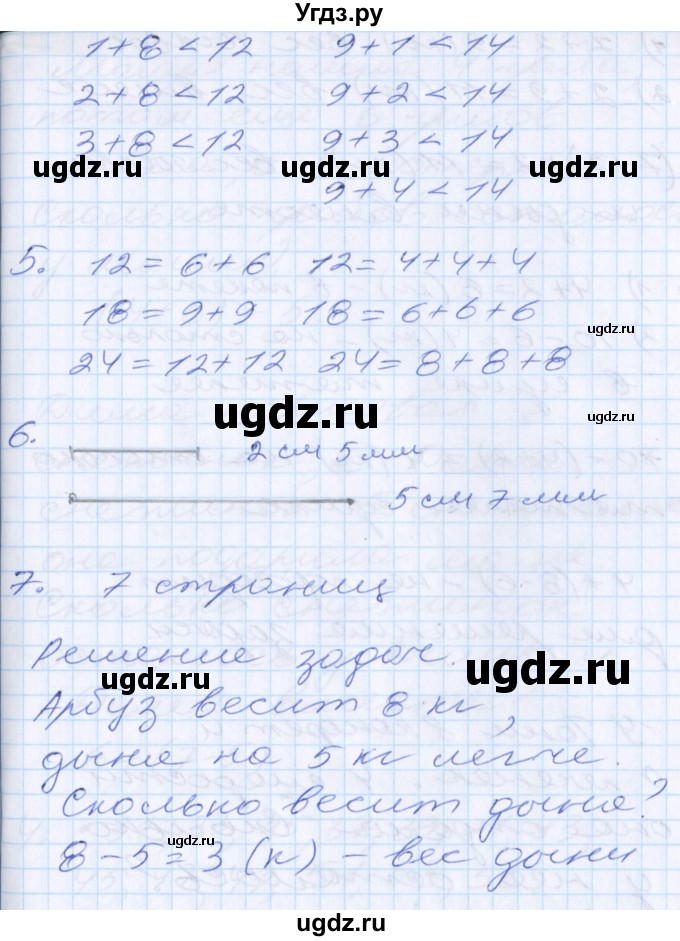 Угдз.ру
1+8<12 9+1<14
2+8<12 9+2<14
3+8<12 9+3<14
ugdz.ru ugdz.ru ugdz.ru
9+4<14
5. 12=6+6 12=4+4+4
18=9+9 18=6+6+6
ugdz.ru
24=12+12 24=8+8+8
ugdz.ru ugdz.ru
6. 2 см 5 мм
5 см 7 мм
7. 7 страниц
Решение задач.
ugdz.ru ugdz.ru
Арбуз весит 8 кг,
дыня на 5 кг легче.
Сколько весит дыня?
ugdz.ru
8-5=3 (к) - вес дыни
ugdz.ru